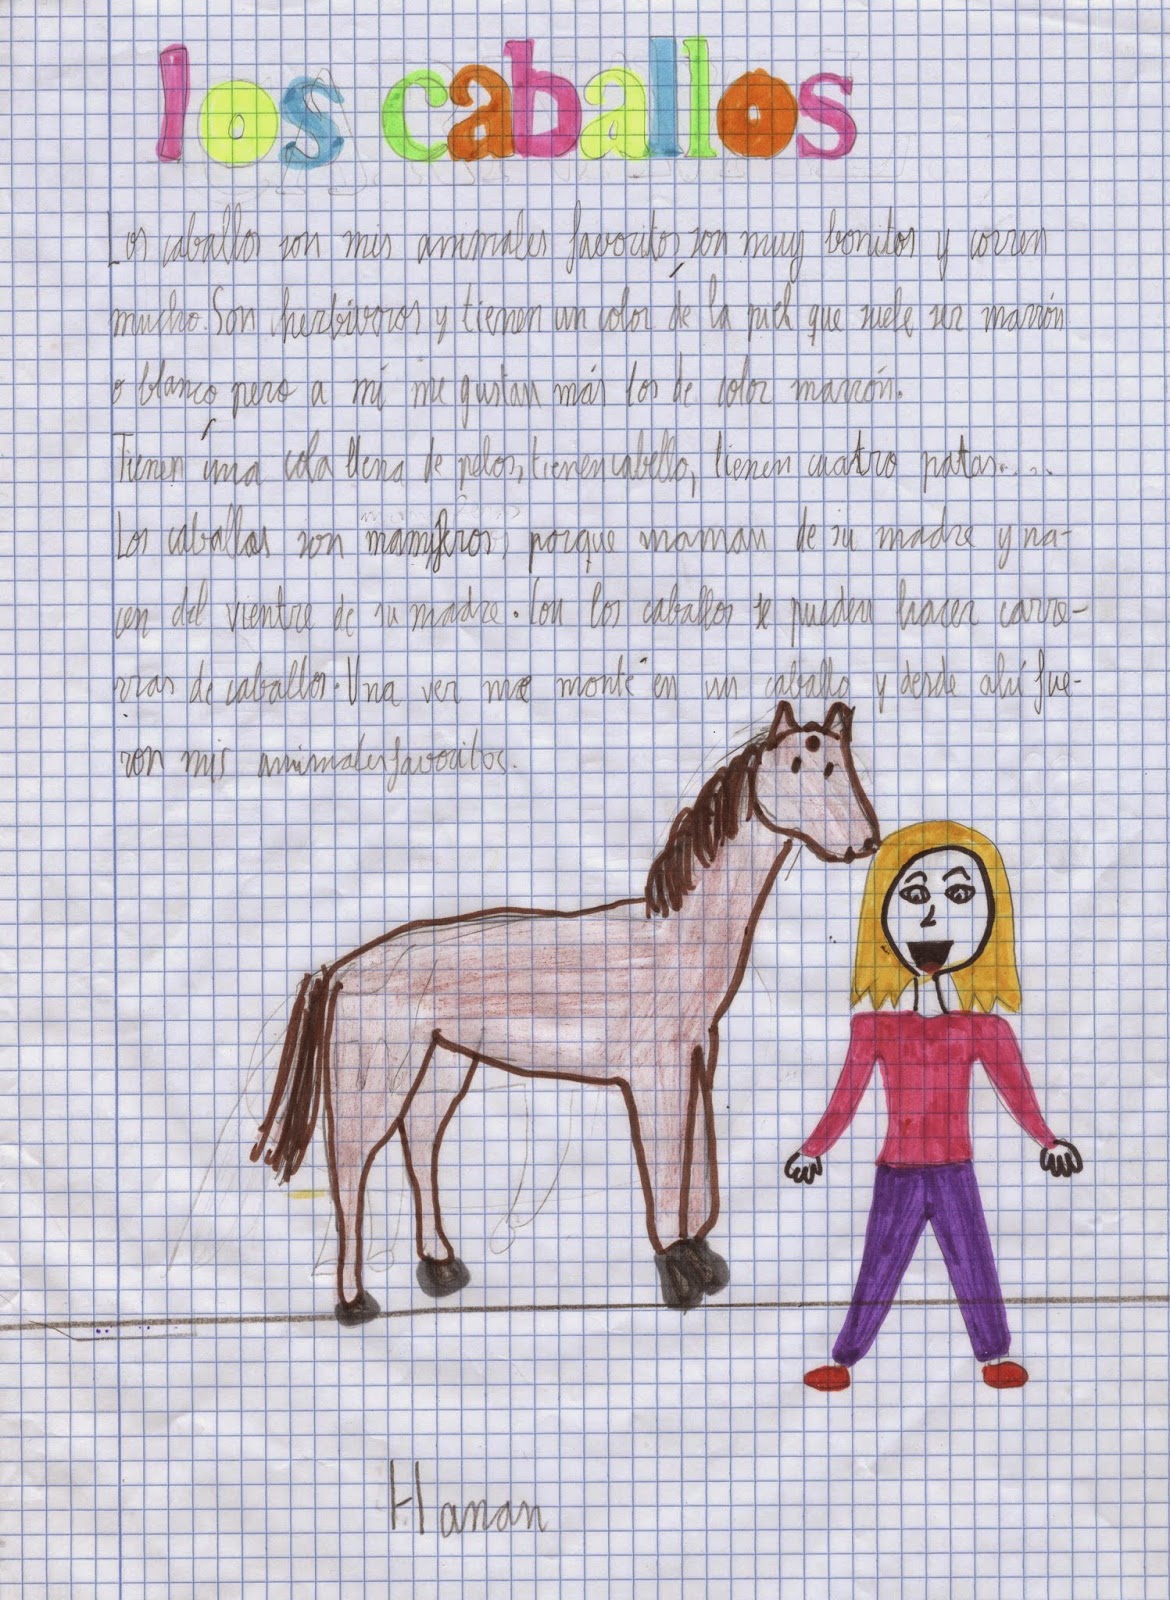 los caballos
Los caballos son mis animales favoritos, son muy bonitos y corren
mucho. Son herbívoros y tienen un color de la piel que suele ser marrón
o blanco pero a mí me gustan más los de color marrón.
Tienen una cola llena de pelos, tienen cabello, tienen cuatro patas.....
Los caballos son mamíferos, porque maman de su madre y na-
cen del vientre de su madre. Con los caballos se pueden hacer carre-
rras de caballos. Una vez me monté en un caballo y desde ahí fue-
ron mis animales favoritos.
Hanan